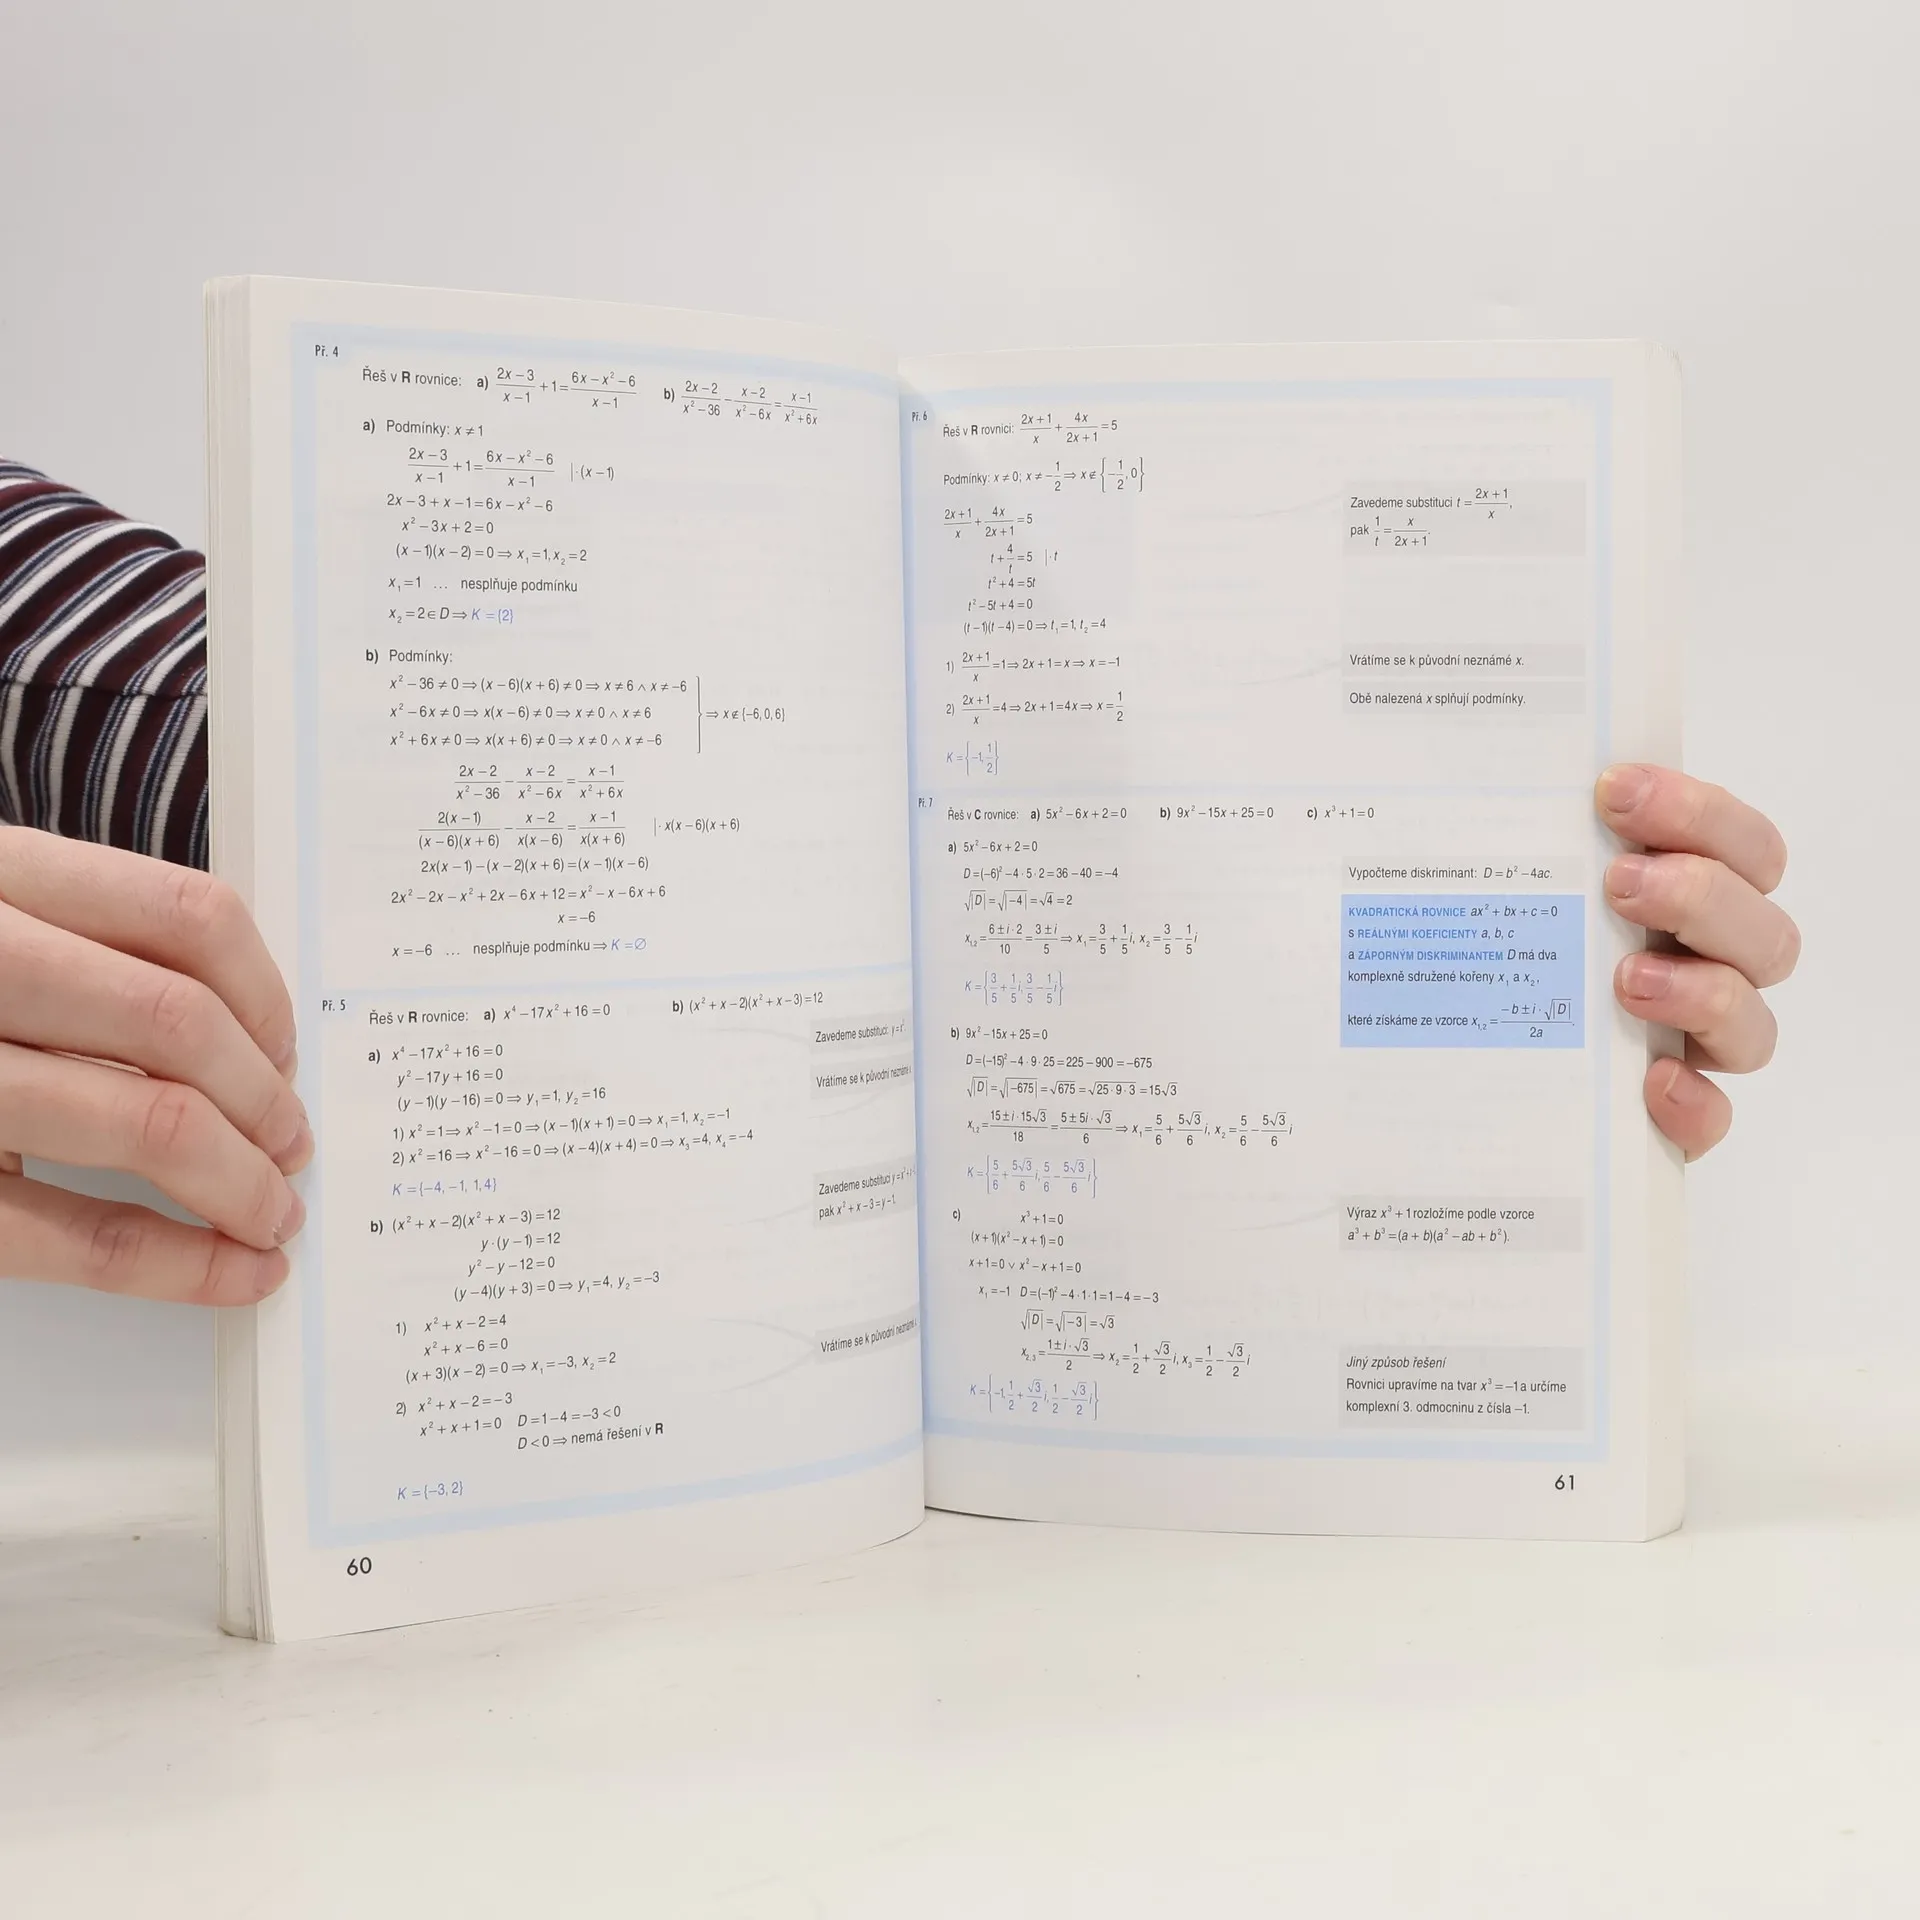 Př. 4
Řeš v R rovnice: a) (2x − 3)/(x − 1) + 1 = (6x − x² − 6)/(x − 1) b) (2x − 2)/(x² − 36) − (x − 2)/(x² − 6x) = (x − 1)/(x² + 6x)
a) Podmínky: x ≠ 1
(2x − 3)/(x − 1) + 1 = (6x − x² − 6)/(x − 1) | · (x − 1)
2x − 3 + x − 1 = 6x − x² − 6
x² − 3x + 2 = 0
(x − 1)(x − 2) = 0 ⇒ x₁ = 1, x₂ = 2
x₁ = 1 ... nesplňuje podmínku
x₂ = 2 ∈ D ⇒ K = {2}
b) Podmínky:
x² − 36 ≠ 0 ⇒ (x − 6)(x + 6) ≠ 0 ⇒ x ≠ 6 ∧ x ≠ −6
x² − 6x ≠ 0 ⇒ x(x − 6) ≠ 0 ⇒ x ≠ 0 ∧ x ≠ 6 ⇒ x ∉ {−6, 0, 6}
x² + 6x ≠ 0 ⇒ x(x + 6) ≠ 0 ⇒ x ≠ 0 ∧ x ≠ −6
(2x − 2)/(x² − 36) − (x − 2)/(x² − 6x) = (x − 1)/(x² + 6x)
2(x − 1)/((x − 6)(x + 6)) − (x − 2)/(x(x − 6)) = (x − 1)/(x(x + 6)) | · x(x − 6)(x + 6)
2x(x − 1) − (x − 2)(x + 6) = (x − 1)(x − 6)
2x² − 2x − x² + 2x − 6x + 12 = x² − x − 6x + 6
x = −6
x = −6 ... nesplňuje podmínku ⇒ K = ∅
Př. 5
Řeš v R rovnice: a) x⁴ − 17x² + 16 = 0 b) (x² + x − 2)(x² + x − 3) = 12
Zavedeme substituci: y = x².
a) x⁴ − 17x² + 16 = 0
y² − 17y + 16 = 0
Vrátíme se k původní neznámé
(y − 1)(y − 16) = 0 ⇒ y₁ = 1, y₂ = 16
1) x² = 1 ⇒ x² − 1 = 0 ⇒ (x − 1)(x + 1) = 0 ⇒ x₁ = 1, x₂ = −1
2) x² = 16 ⇒ x² − 16 = 0 ⇒ (x − 4)(x + 4) = 0 ⇒ x₃ = 4, x₄ = −4
K = {−4, −1, 1, 4}
Zavedeme substituci y = x² + x
pak x² + x − 3 = y − 1.
b) (x² + x − 2)(x² + x − 3) = 12
y · (y − 1) = 12
y² − y − 12 = 0
(y − 4)(y + 3) = 0 ⇒ y₁ = 4, y₂ = −3
1) x² + x − 2 = 4
x² + x − 6 = 0
Vrátíme se k původní neznámé
(x + 3)(x − 2) = 0 ⇒ x₁ = −3, x₂ = 2
2) x² + x − 2 = −3
x² + x + 1 = 0 D = 1 − 4 = −3 < 0
D < 0 ⇒ nemá řešení v R
K = {−3, 2}
60
Př. 6
Řeš v R rovnici: (2x + 1)/x + 4x/(2x + 1) = 5
Podmínky: x ≠ 0; x ≠ −1/2 ⇒ x ∉ {−1/2, 0}
(2x + 1)/x + 4x/(2x + 1) = 5
Zavedeme substituci t = (2x + 1)/x,
pak 1/t = x/(2x + 1).
t + 4/t = 5 | · t
t² + 4 = 5t
t² − 5t + 4 = 0
(t − 1)(t − 4) = 0 ⇒ t₁ = 1, t₂ = 4
1) (2x + 1)/x = 1 ⇒ 2x + 1 = x ⇒ x = −1
Vrátíme se k původní neznámé x.
2) (2x + 1)/x = 4 ⇒ 2x + 1 = 4x ⇒ x = 1/2
Obě nalezená x splňují podmínky.
K = {−1, 1/2}
Př. 7
Řeš v C rovnice: a) 5x² − 6x + 2 = 0 b) 9x² − 15x + 25 = 0 c) x³ + 1 = 0
a) 5x² − 6x + 2 = 0
D = (−6)² − 4 · 5 · 2 = 36 − 40 = −4
Vypočteme diskriminant: D = b² − 4ac.
√|D| = √|−4| = √4 = 2
x₁,₂ = (6 ± i · 2)/10 = (3 ± i)/5 ⇒ x₁ = 3/5 + 1/5 i, x₂ = 3/5 − 1/5 i
K = {3/5 + 1/5 i, 3/5 − 1/5 i}
KVADRATICKÁ ROVNICE ax² + bx + c = 0
s REÁLNÝMI KOEFICIENTY a, b, c
a ZÁPORNÝM DISKRIMINANTEM D má dva
komplexně sdružené kořeny x₁ a x₂,
které získáme ze vzorce x₁,₂ = (−b ± i · √|D|)/2a.
b) 9x² − 15x + 25 = 0
D = (−15)² − 4 · 9 · 25 = 225 − 900 = −675
√|D| = √|−675| = √675 = √25 · 9 · 3 = 15√3
x₁,₂ = (15 ± i · 15√3)/18 = (5 ± 5i · √3)/6 ⇒ x₁ = 5/6 + 5√3/6 i, x₂ = 5/6 − 5√3/6 i
K = {5/6 + 5√3/6 i, 5/6 − 5√3/6 i}
c) x³ + 1 = 0
(x + 1)(x² − x + 1) = 0
Výraz x³ + 1 rozložíme podle vzorce
a³ + b³ = (a + b)(a² − ab + b²).
x + 1 = 0 ∨ x² − x + 1 = 0
x₁ = −1 D = (−1)² − 4 · 1 · 1 = 1 − 4 = −3
√|D| = √|−3| = √3
x₂,₃ = (1 ± i · √3)/2 ⇒ x₂ = 1/2 + √3/2 i, x₃ = 1/2 − √3/2 i
K = {−1, 1/2 + √3/2 i, 1/2 − √3/2 i}
Jiný způsob řešení
Rovnici upravíme na tvar x³ = −1 a určíme
komplexní 3. odmocninu z čísla −1.
61